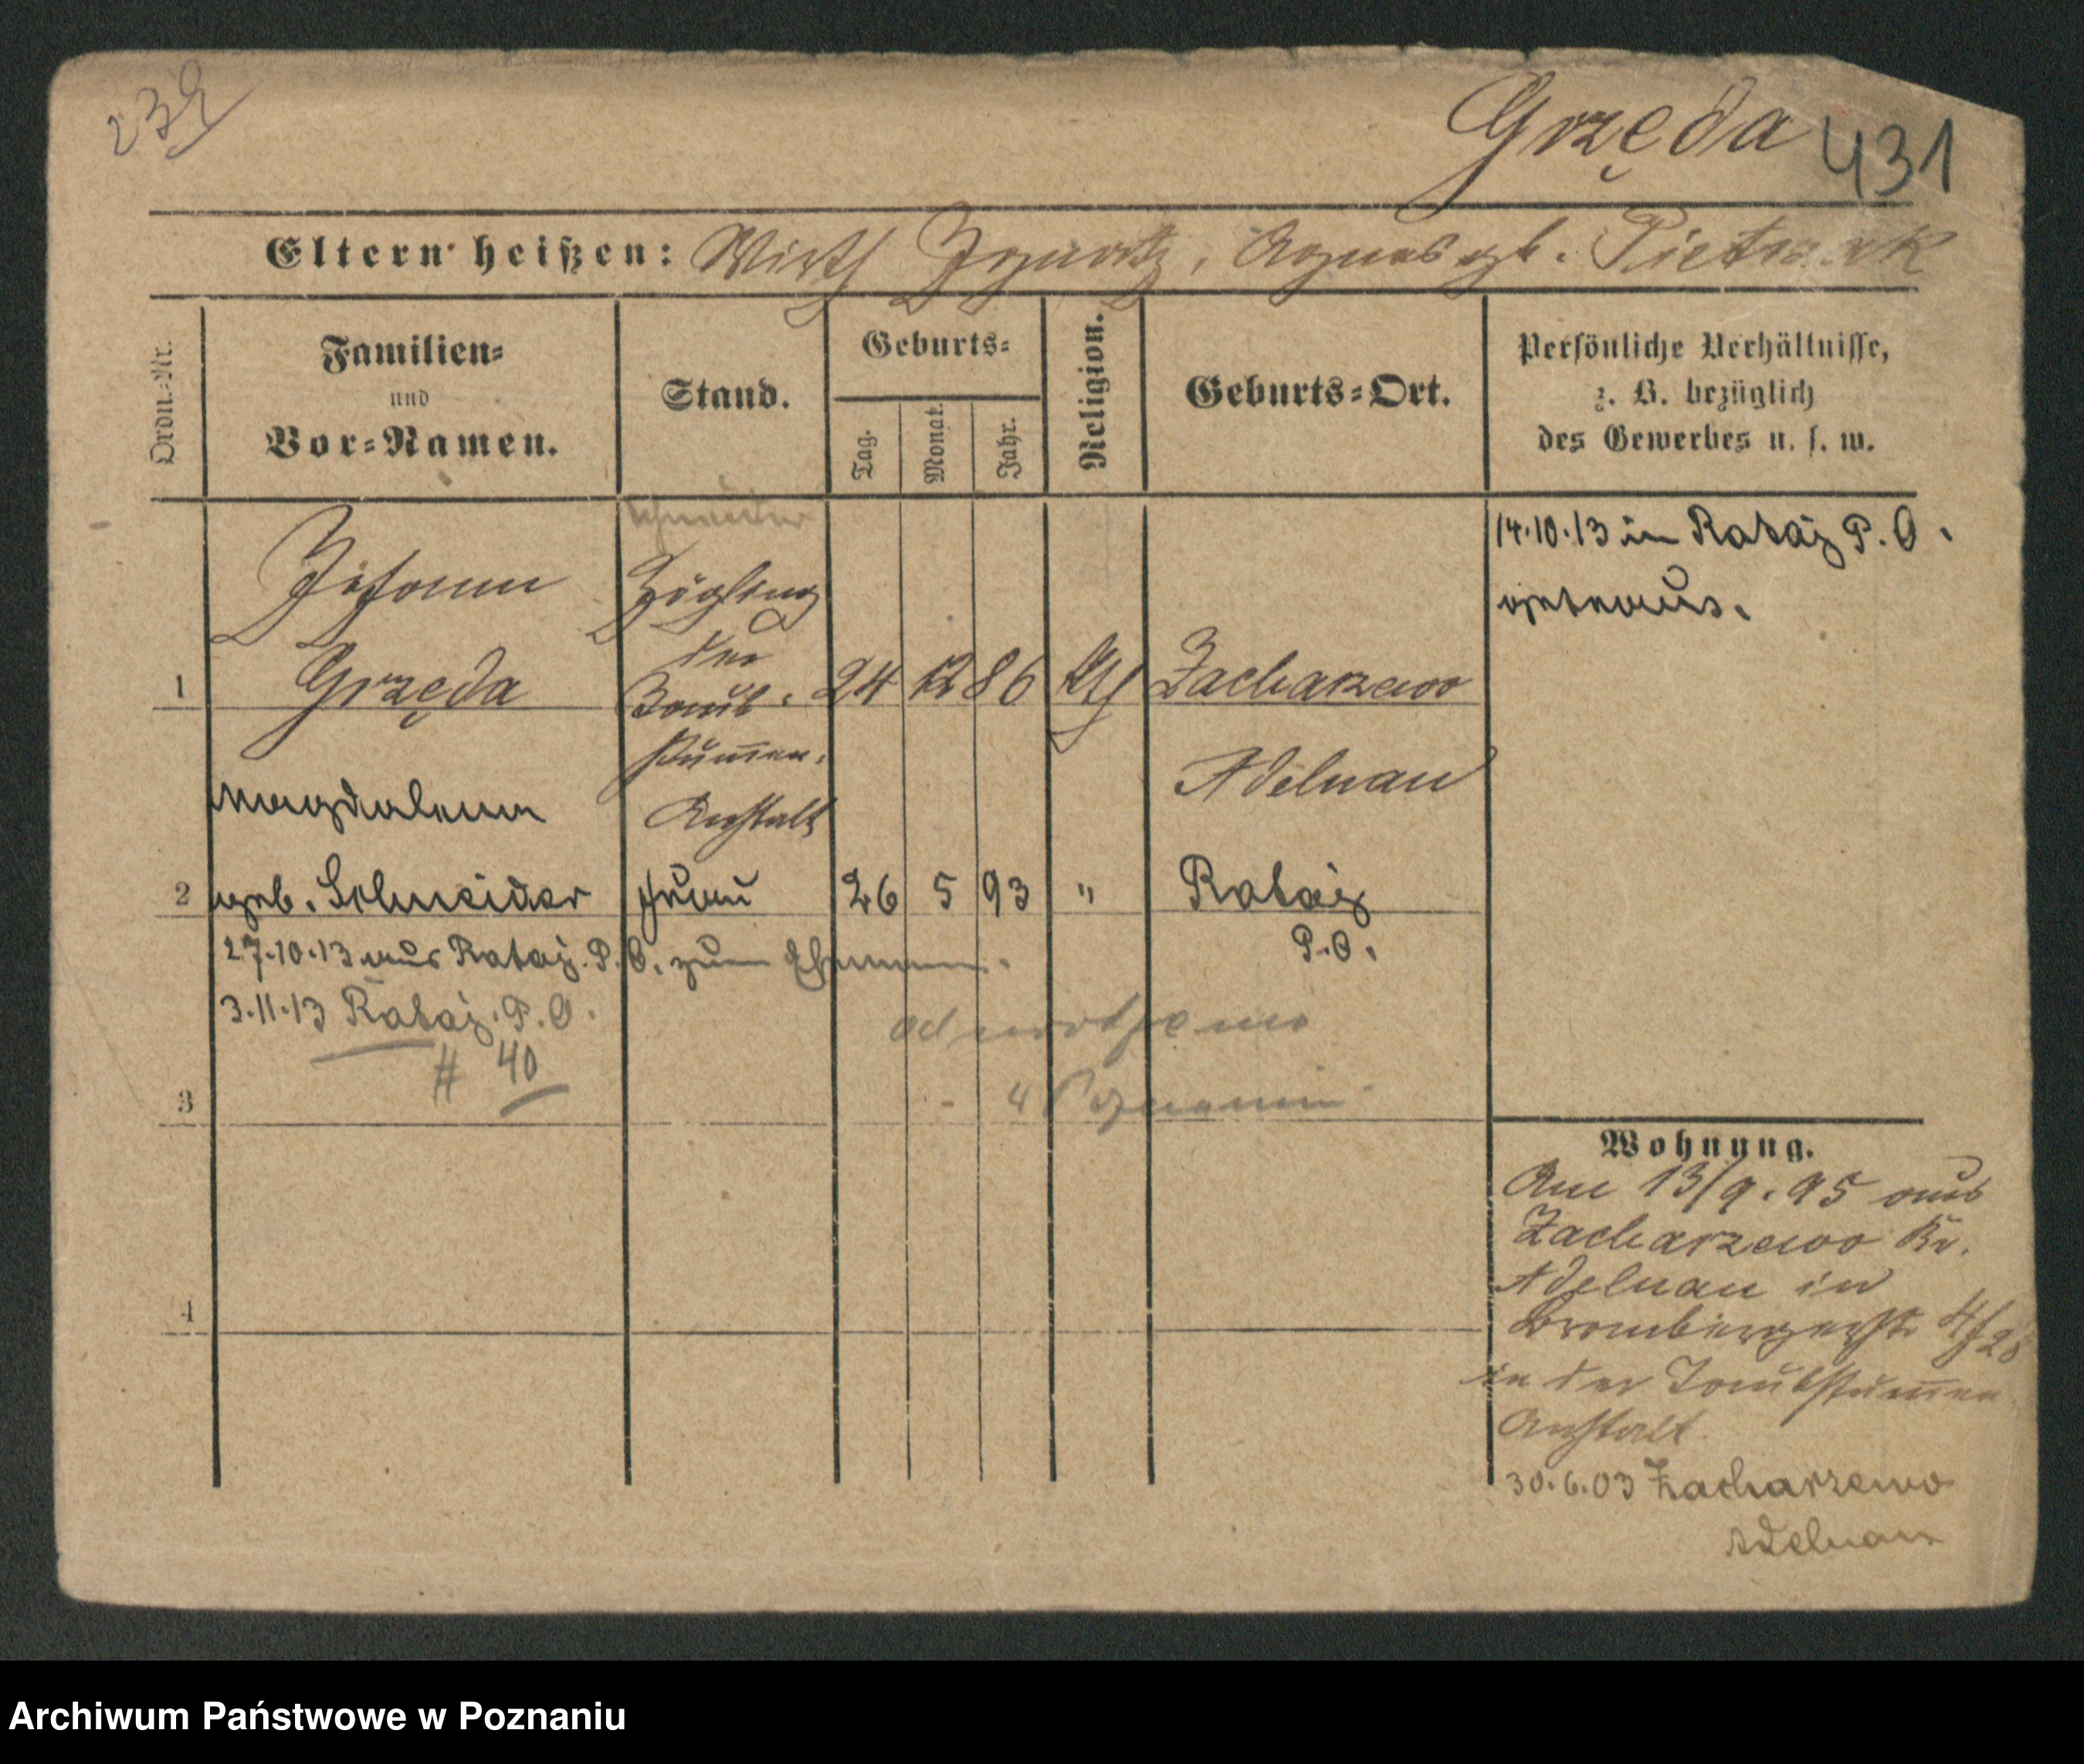 239
Grzęda 431
Eltern heißen: Wirth Ignatz, Agnes geb. Pietrzak
Ordn.-Nr.
Familien-
und
Vor-Namen.
Stand.
Geburts-
Tag.
Monat.
Jahr.
Religion.
Geburts-Ort.
Persönliche Verhältnisse,
z. B. bezüglich
des Gewerbes u. s. w.
Schneider
Johann
Grzęda
Zögling
der
Taub-
stum̄en-
Anstalt
1
24 12 86
Zacharzewo
Adelnau
14.10.13 in Rataj P. O.
2
Magdalena
geb. Schneider
Frau
26 5 93 "
Rataj
P.O.
27.10.13 aus Rataj P.O. zum Ehemann.
3.11.13 Rataj. P. O.
# 40
3
4
Wohnung.
Am 13/9.95 aus
Zacharzewo Kr.
Adelnau in
Brombergerstr. 4/28
in der Taubstum̄en
Anstalt.
30.6.03 Zacharzewo
Adelnau
Archiwum Państwowe w Poznaniu